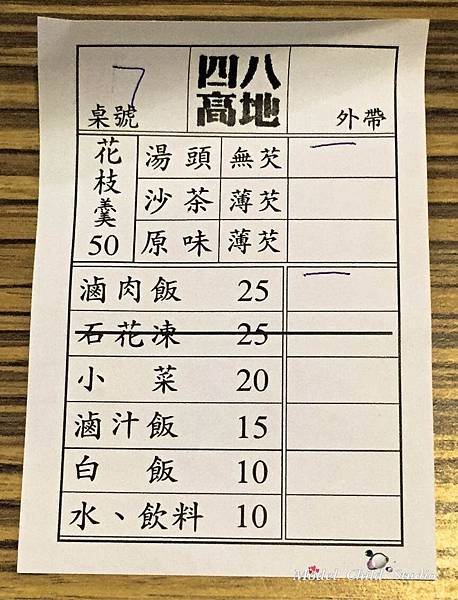 7
四八
高地
桌號
外帶
花枝羹 50
湯頭 無芡 一
沙茶 薄芡
原味 薄芡
滷肉飯 25 一
石花凍 25
小菜 20
滷汁飯 15
白飯 10
水、飲料 10
Model Child Studio